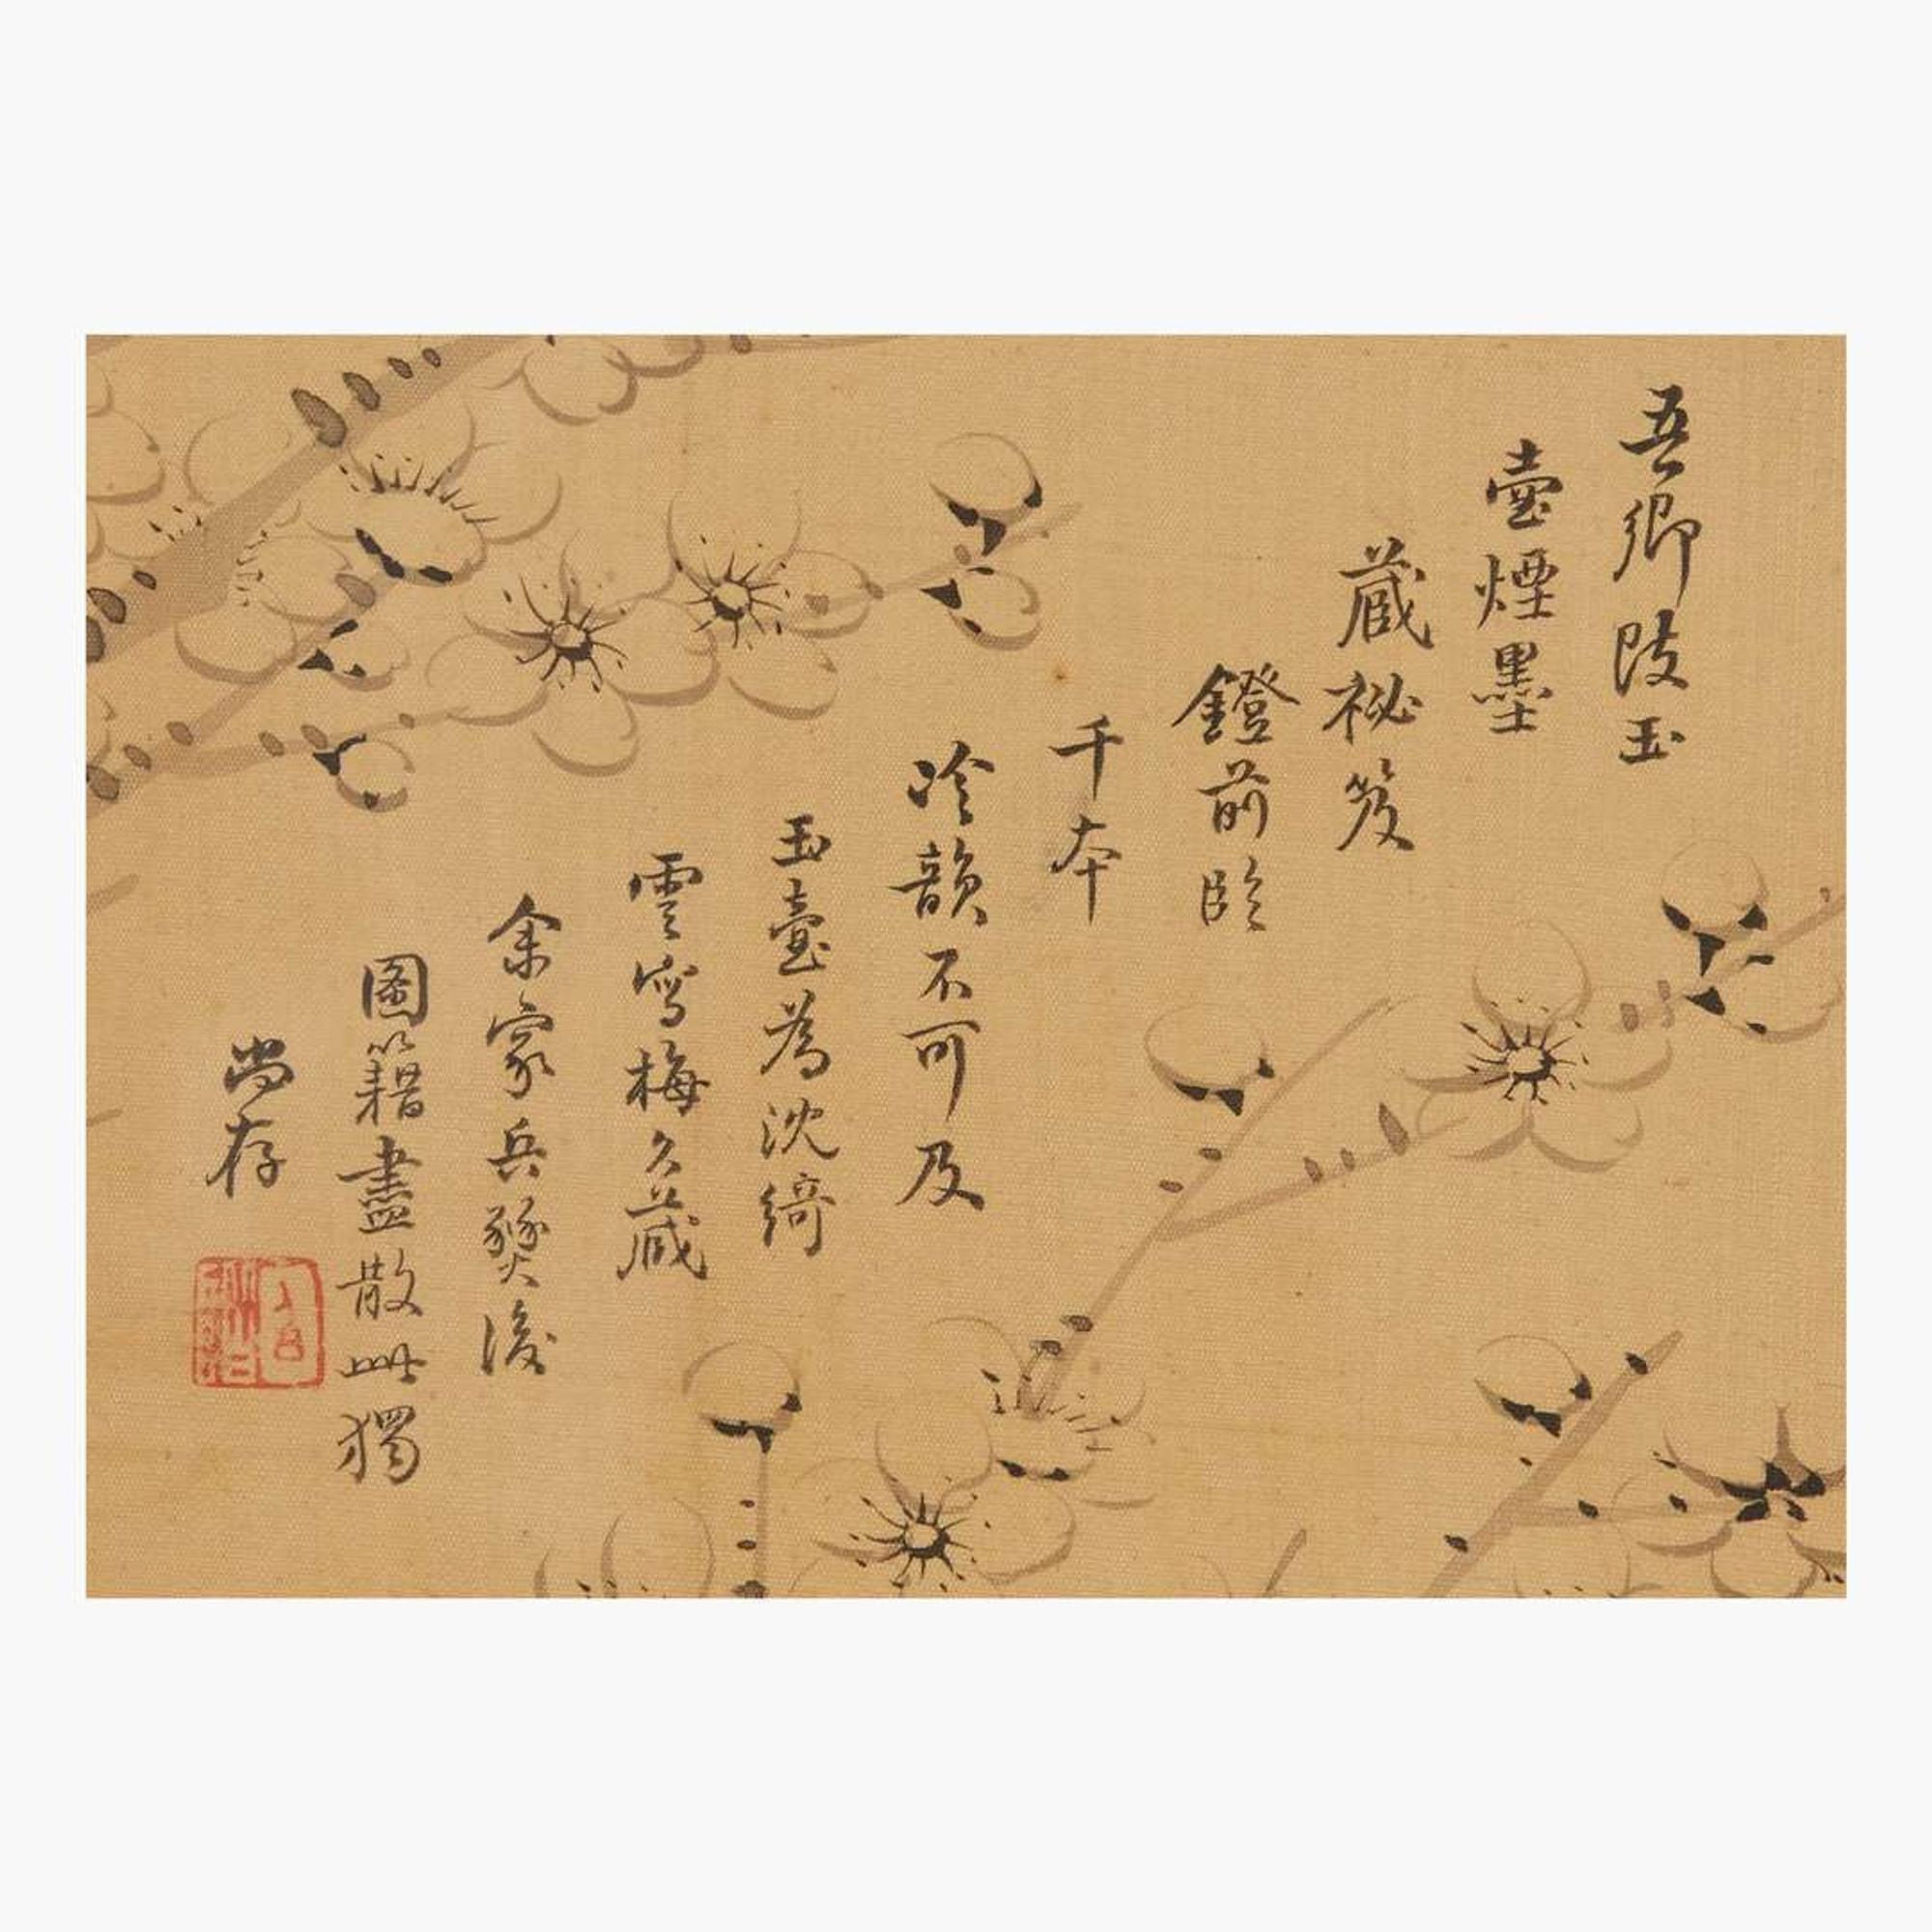 吾鄉改玉
壺煙墨
蔵祕笈
鐙前臨
千本
冷韻不可及
玉臺為沈綺
雲寫梅久蔵
余家兵燹後
圖籍盡散此獨
尚存